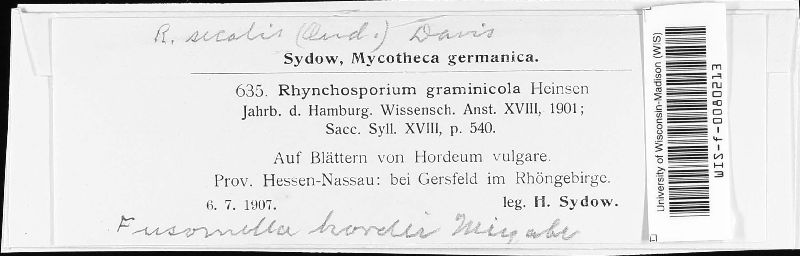 R. secalis (Oud.) Davis
Sydow, Mycotheca germanica.
635. Rhynchosporium graminicola Heinsen
Jahrb. d. Hamburg. Wissensch. Anst. XVIII, 1901;
Sacc. Syll. XVIII, p. 540.
Auf Blättern von Hordeum vulgare.
Prov. Hessen-Nassau: bei Gersfeld im Rhöngebirge.
6. 7. 1907. leg. H. Sydow.
Fusomella hordei Miyabe
University of Wisconsin-Madison (WIS)
WIS-f-0090213